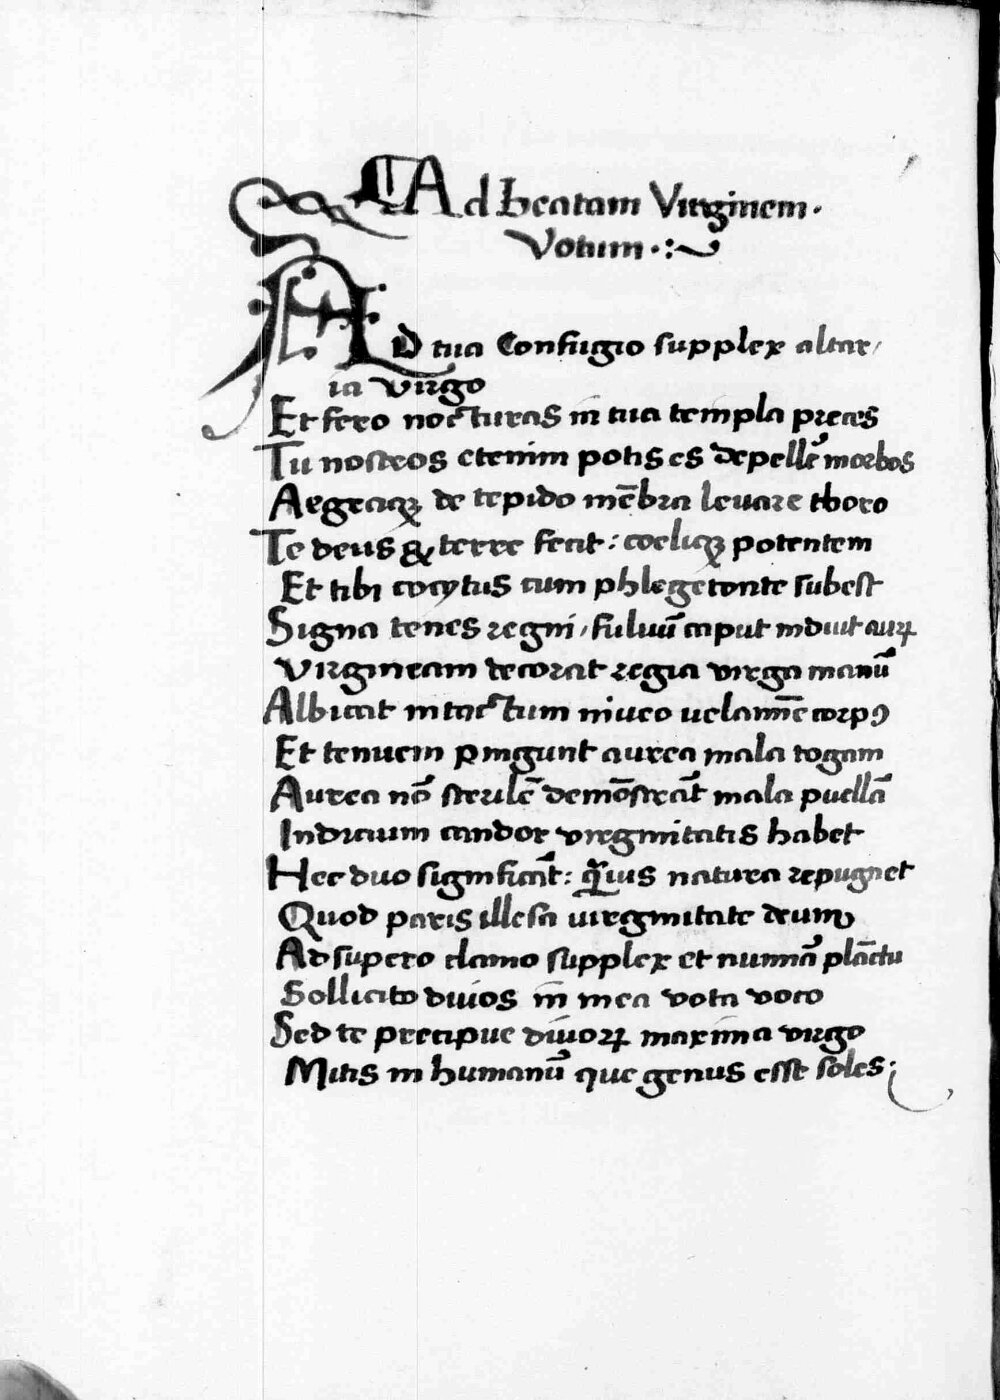 Ad beatam Virginem.
Votum.:~
AD tua Confugio supplex altar/
ia Virgo
Et fero nocturas in tua templa preces
Tu nostros etenim potis es depellẽ morbos
Aegraqꝫ de tepido mẽbra levare thoro
Te deus & terre fecit: coeliqꝫ potentem
Et tibi cocytus cum phlegetonte subest
Signa tenes regni/ fuluũ caput induit auꝝ
Virgineam decorat regia virga manũ
Albicat intactum niueo uelamĩe corpꝰ
Et tenuem pingunt aurea mala togam
Aurea nõ sterilẽ demõstrãt mala puellã
Indicium candor virginitatis habet
Hec duo significãt: q̃uis natura repugnet
Quod paris illesa uirginitate deum
Ad supero clamo supplex et nunnã plãctu
Sollicito diuos in mea vota voco
Sed te precipue diuoꝝ maxima virgo
Mitis in humanũ que genus esse soles: